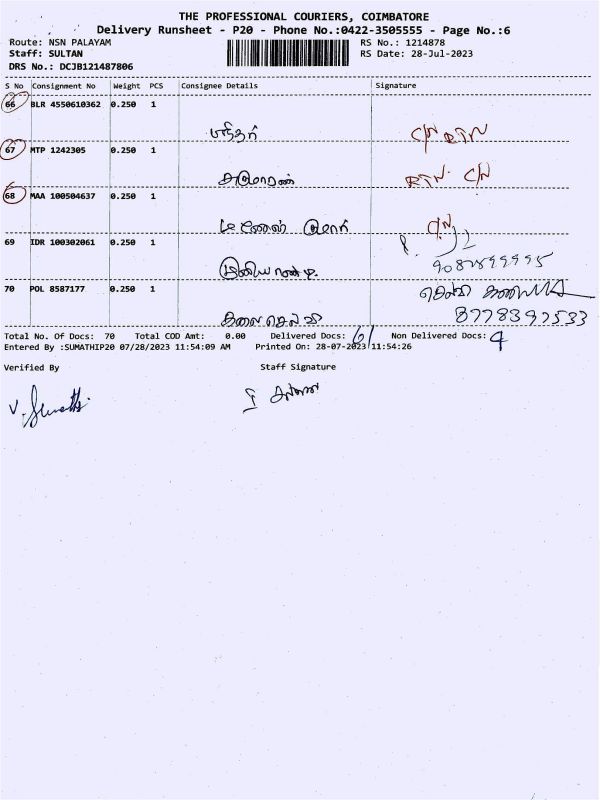 THE PROFESSIONAL COURIERS, COIMBATORE
Delivery Runsheet - P20 - Phone No.:0422-3505555 - Page No.:6
Route: NSN PALAYAM RS No.: 1214878
Staff: SULTAN RS Date: 28-Jul-2023
DRS No.: DCJB121487806
S No Consignment No Weight PCS Consignee Details Signature
66 BLR 4550610362 0.250 1
C/N RTN
67 MTP 1242305 0.250 1
RTN. C/N
68 MAA 100504637 0.250 1
C/N
69 IDR 100302061 0.250 1
70 POL 8587177 0.250 1
கலைசெல்வி 8778397533
Total No. Of Docs: 70 Total COD Amt: 0.00 Delivered Docs: 61 Non Delivered Docs: 9
Entered By :SUMATHIP20 07/28/2023 11:54:09 AM Printed On: 28-07-2023 11:54:26
Verified By Staff Signature
V. Sumathi